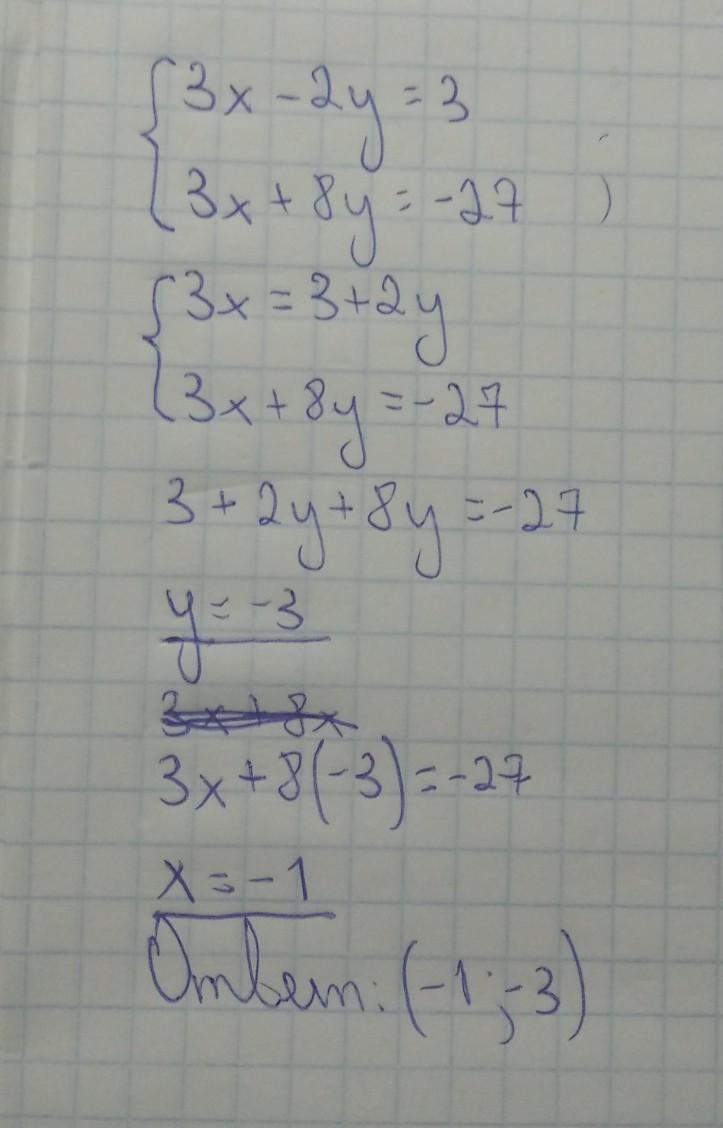 3x - 2y = 3
3x + 8y = -27 )
3x = 3 + 2y
3x + 8y = -27
3 + 2y + 8y = -27
y = -3
3x + 8x
3x + 8(-3) = -27
x = -1
Ответ: (-1; -3)